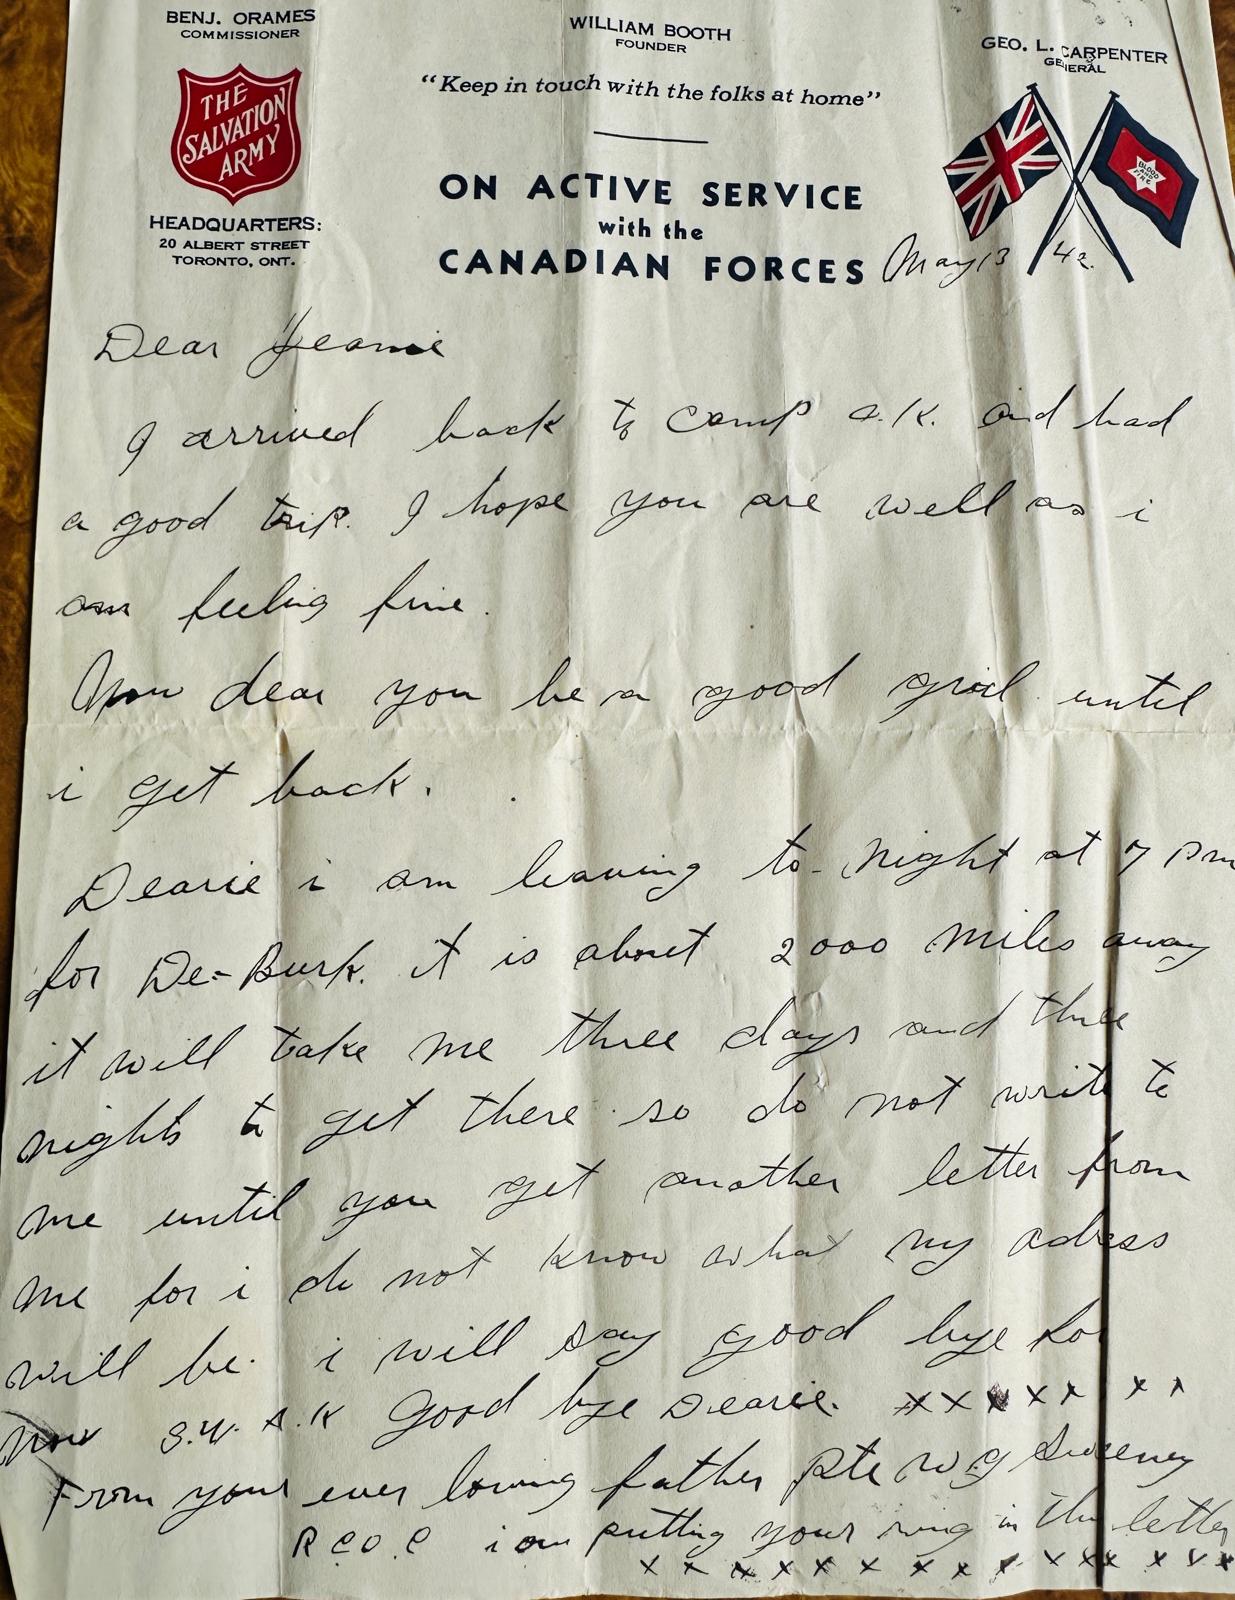 BENJ. ORAMES
COMMISSIONER
THE
SALVATION
ARMY
HEADQUARTERS:
20 ALBERT STREET
TORONTO, ONT.
WILLIAM BOOTH
FOUNDER
"Keep in touch with the folks at home"
ON ACTIVE SERVICE
with the
CANADIAN FORCES
GEO. L. CARPENTER
GENERAL
BLOOD
AND
FIRE
May 13 42.
Dear Jeanie
I arrived back to camp O.K. and had
a good trip. I hope you are well as i
am feeling fine.
Now dear you be a good gril until
i get back.
Dearie i am leaving to-night at 7 PM
for De-Burk. it is about 2000 miles away
it will take me three days and three
nights to get there so do not write to
me until you get another letter from
me for i do not know what my adress
will be. i will say good bye for
now S.W.A.K Good bye Dearie. x x x x x x x
From your ever loving father Pte W G Sweeney
R.C.O.C i am putting your ring in this letter
x x x x x x x x x x x x x x x